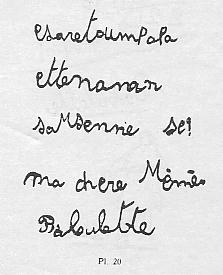 esaretoumpapa
ettenanan
saMsennie se!
ma chere Mémé.
Baloulette
Pl. 20